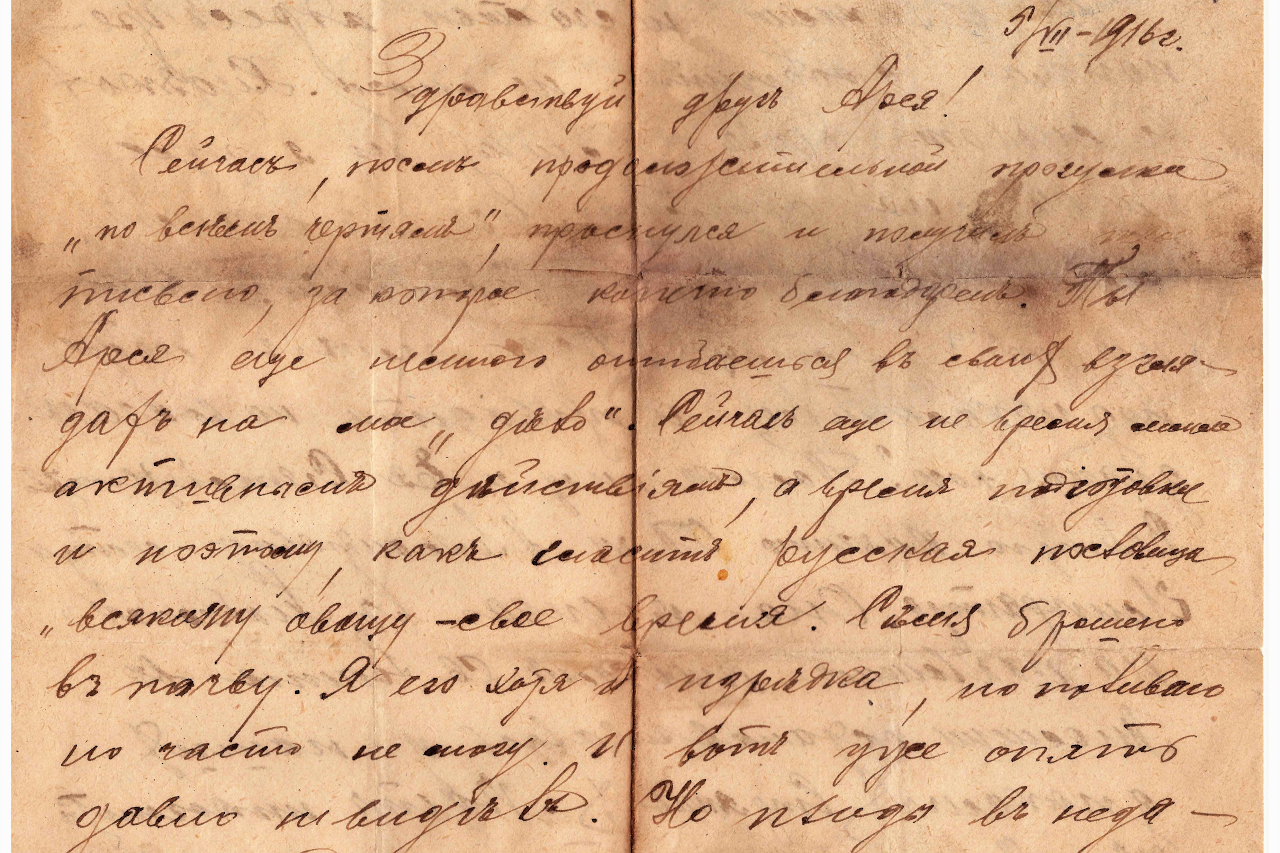 5/VII–1916г.
Здравствуй другъ Ареся!
Сейчасъ, послѣ продолжительной прогулки
„по всѣмъ чертямъ", проснулся и получилъ
письмо, за которое конечно благодаренъ. Ты
Ареся еще немного ошибаешься въ своихъ взгля-
дахъ на мое „дѣло". Сейчасъ еще не время
активнымъ дѣйствіямъ, а время подготовки
и поэтому, какъ гласитъ русская пословица
„всякому овощу – свое время. Сѣмя брошено
въ почву. Я его хотя и изрѣдка, но поливаю
но часто не могу. И вотъ уже опять
давно не видѣлъ. Но приходъ въ неда-